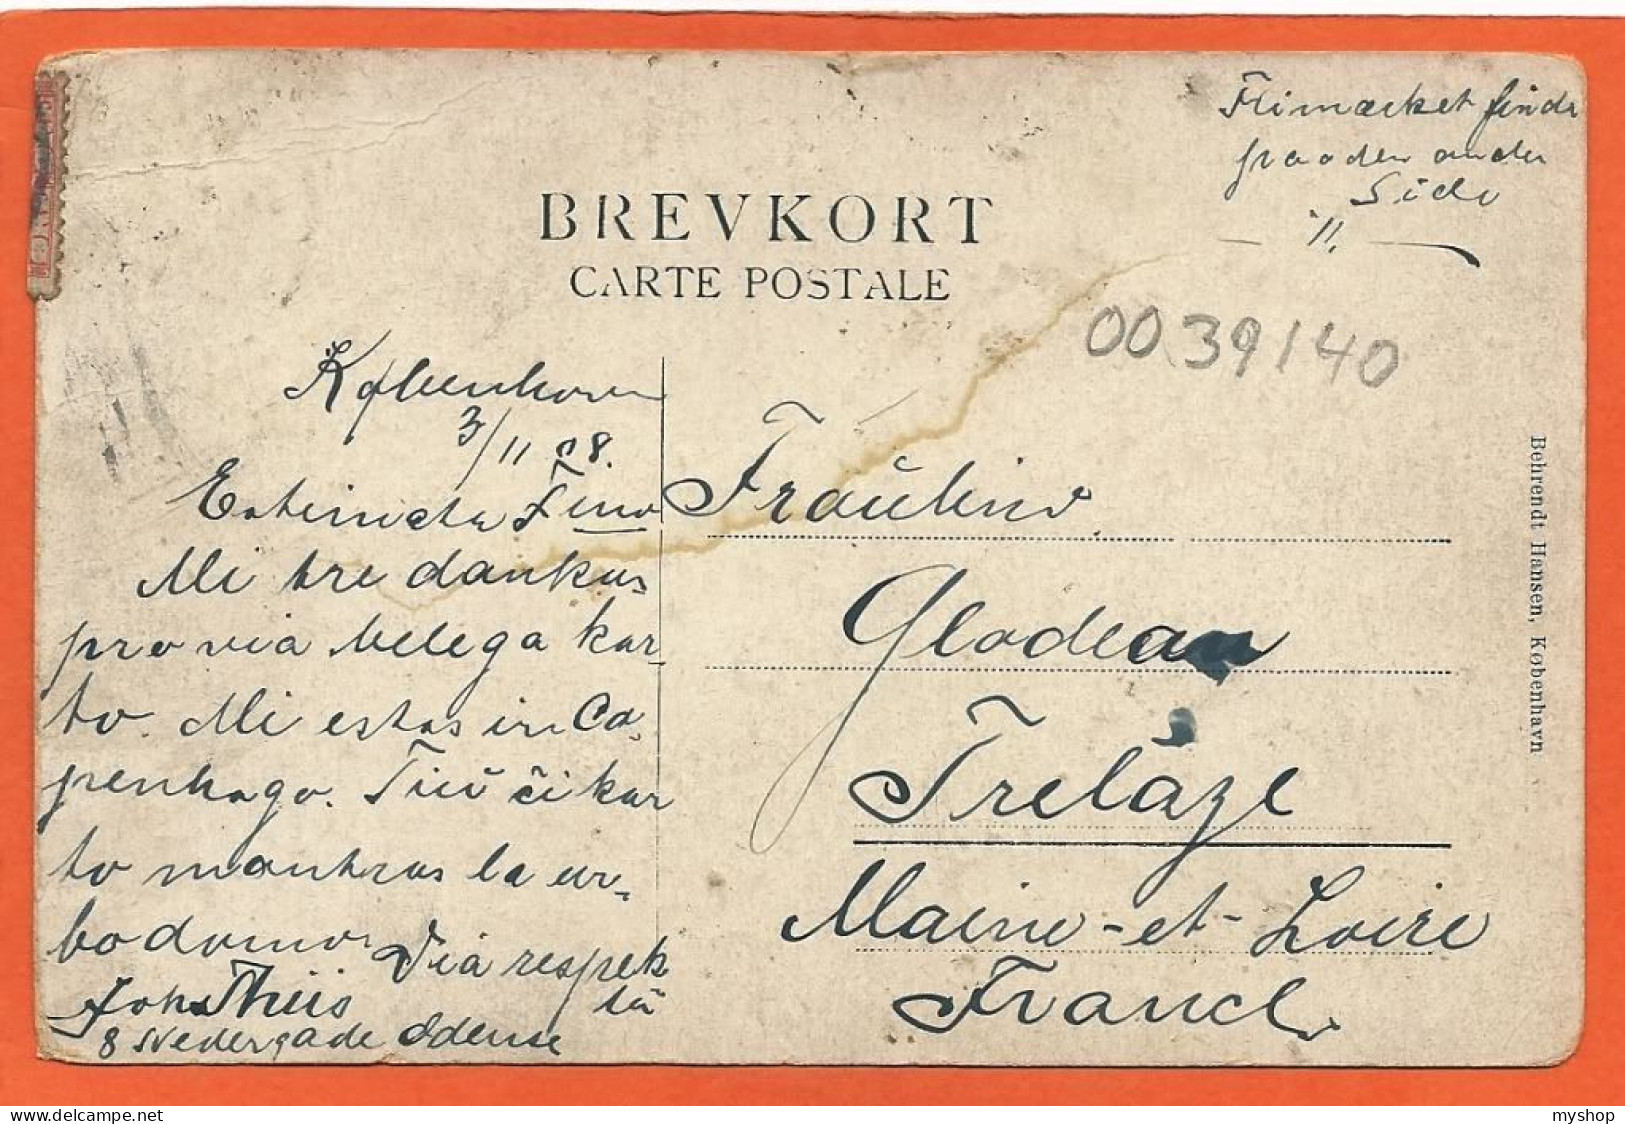 Frimærket finds
paa den anden
Side
"
BREVKORT
CARTE POSTALE
0039140
København
3/11 08.
Estimata Fino
Mi tre dankas
pro via belega kar-
to. Mi estas in Co-
penhago. Tiu ĉi kar
to montras la ur-
bodomo. Via respek
ta
Johs Thiis
8 Nedergade Odense
Fraŭlino
Glodeau
Trélazé
Maine-et-Loire
France
Behrendt Hansen, København
myshop